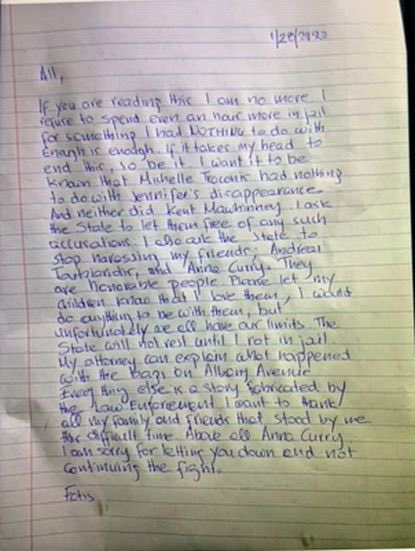 1/28/2020
All,
If you are reading this I am no more. I
refuse to spend even an hour more in jail
for something I had NOTHING to do with
Enough is enough. If it takes my head to
end this, so be it. I want it to be
known that Michelle Troconis had nothing
to do with Jennifer's disappearance.
And neither did Kent Mawhinney. I ask
the State to let them free of any such
accusations. I also ask the State to
stop harassing my friends, Andreas
Toutziaridis, and Anna Curry. They
are honorable people. Please let my
children know that I love them, I would
do anything to be with them, but
unfortunately we all have our limits. The
State will not rest until I rot in jail.
My attorney can explain what happened
with the bags on Albany Avenue.
Everything else is a story fabricated by
the Law Enforcement. I want to thank
all my family and friends that stood by me
this difficult time. Above all Anna Curry.
I am sorry for letting you down and not
continuing the fight.
Fotis